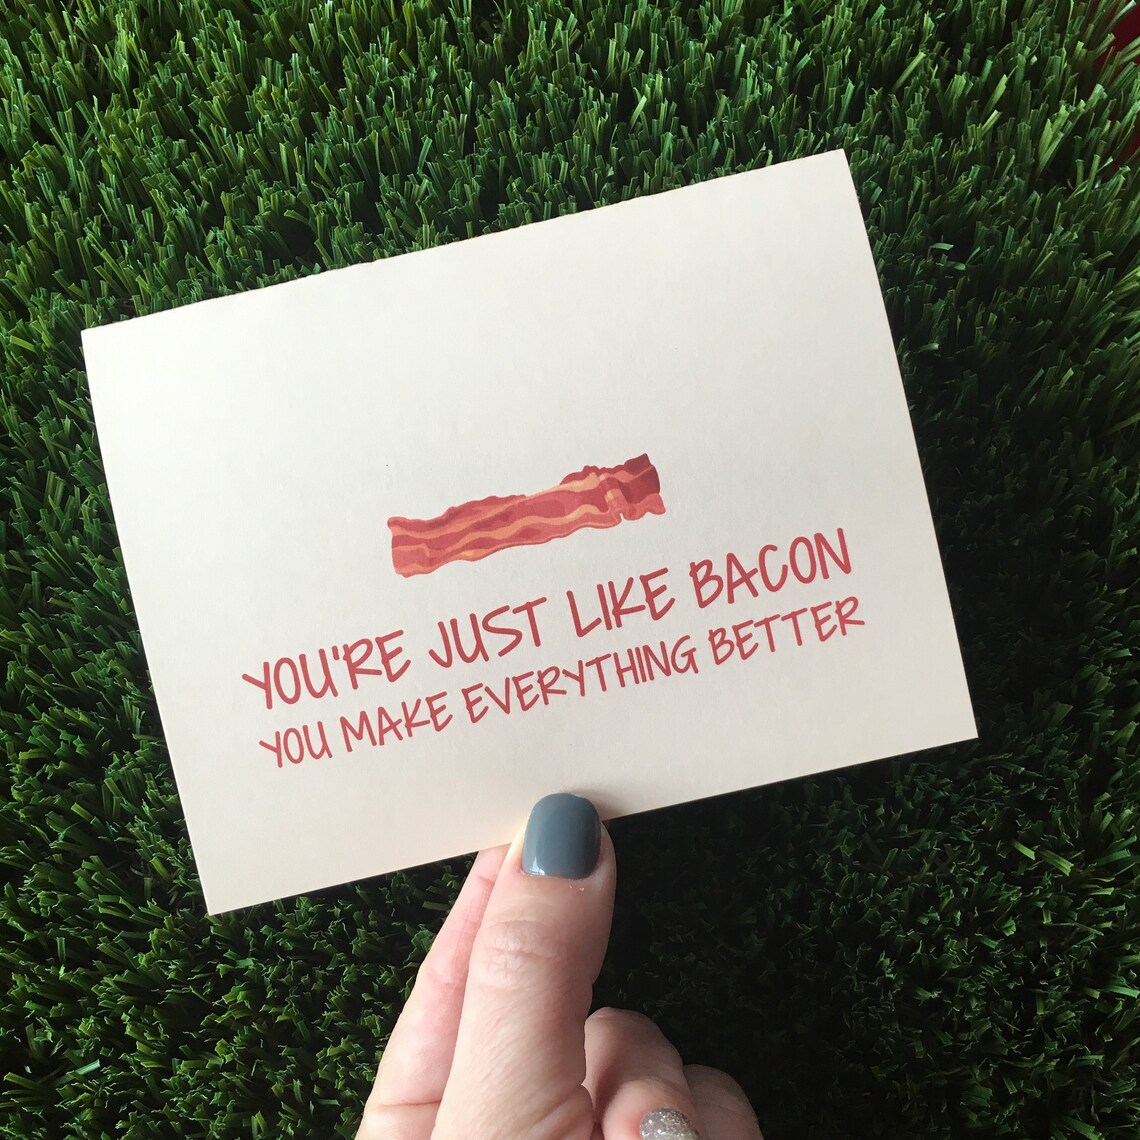 YOU'RE JUST LIKE BACON
YOU MAKE EVERYTHING BETTER